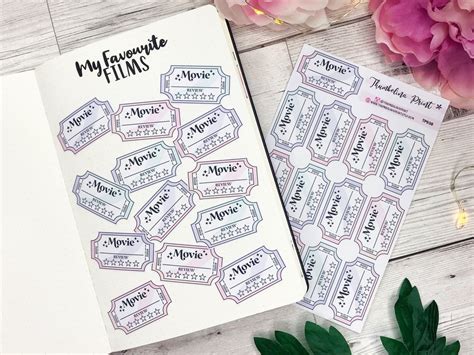 My Favourite
FILMS
Movie
REVIEW
Movie
REVIEW
Movie
REVIEW
Movie
REVIEW
Movie
REVIEW
Movie
REVIEW
Movie
REVIEW
Movie
REVIEW
Movie
REVIEW
Movie
REVIEW
Movie
REVIEW
Movie
REVIEW
Movie
REVIEW
Thumbelina Prints
Movie
Movie
Movie
Movie
Movie
Movie
Movie
Movie
Movie
Movie
Movie